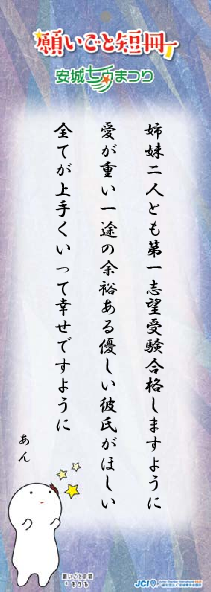 願いごと短冊
安城七夕まつり
姉妹二人とも第一志望受験合格しますように
愛が重い一途の余裕ある優しい彼氏がほしい
全てが上手くいって幸せですように
あん
願いごと短冊
JCI